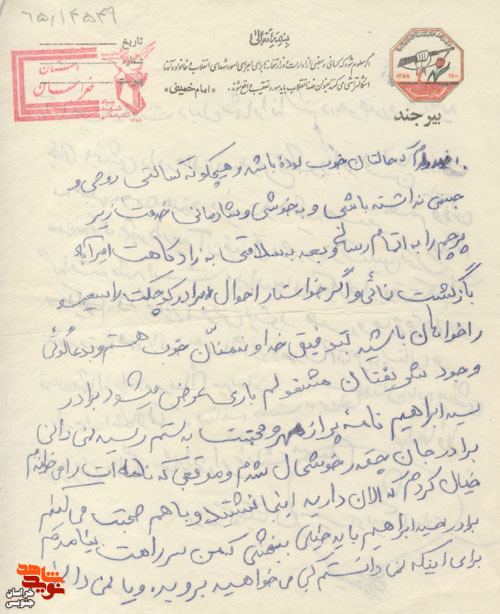 ۶۵/۱۴۵۴۹
بسمه تعالی
تاریخ
شماره
استان
خراسان
بنیاد
شهید
انقلاب اسلامی
«امام خمینی»
بیرجند
امیدوارم که حالتان خوب بوده باشد و هیچگونه کسالتی روحی و
جسمی نداشته باشی و به خوشی و شادمانی خدمت زیر
پرچم را به اتمام رسانی و بعد به سلامتی به زادگاهت
بازگشت نمائی و اگر خواستار احوال برادر کوچکت
را خواهان باشید توفیق خداوند منان خوب هستم و بدعاگوئی
وجود شریفتان مشغولم باری عرض میشود برادر
سید ابراهیم نامه پر از مهر و محبتت به دستم رسید نمی دانی
برادر جان چقدر خوشحال شدم و موقعی که نامه ات را می خواندم
خیال کردم که الان دارید اینجا نشستید و با هم صحبت می کنیم
برادر سید ابراهیم باید خیلی ببخشی که من سر راهت نیامدم
برای اینکه نمی دانستم کی می خواهید بروید و یا نمی
نوید شاهد
خراسان
جنوبی